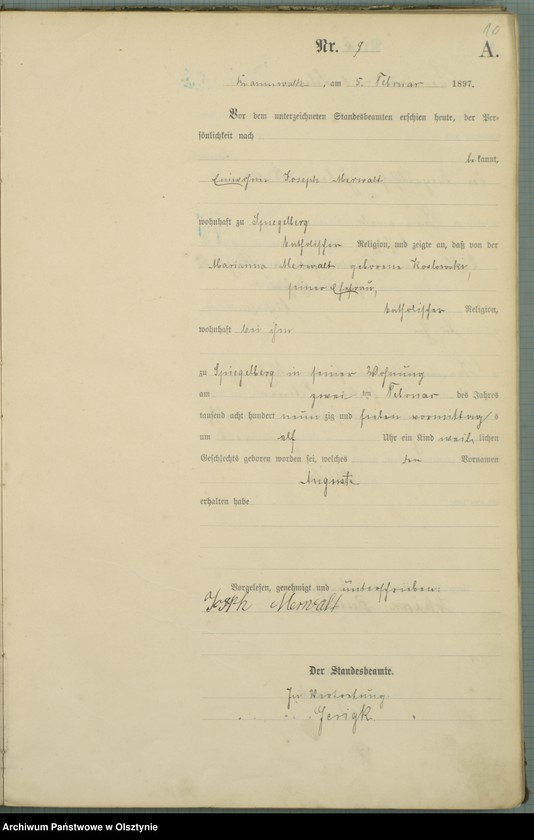 90
Nr. 9
A.
am 5. Februar 1897.
Vor dem unterzeichneten Standesbeamten erschien heute, der Per-
sönlichkeit nach
be kannt,
Joseph Merwalt
wohnhaft zu Spiegelberg
katholischer Religion, und zeigte an, daß von der
Marianna Merwalt geborene
seiner Ehefrau,
katholischer Religion,
wohnhaft bei ihm
zu Spiegelberg in seiner Wohnung
am zwei ten Februar des Jahres
tausend acht hundert neun zig und sieben vormittag s
um elf Uhr ein Kind weib lichen
Geschlechts geboren worden sei, welches den Vornamen
Auguste
erhalten habe
Vorgelesen, genehmigt und unterschrieben:
Joseph Merwalt
Der Standesbeamte.
In Vertretung
Jerigk
Archiwum Państwowe w Olsztynie